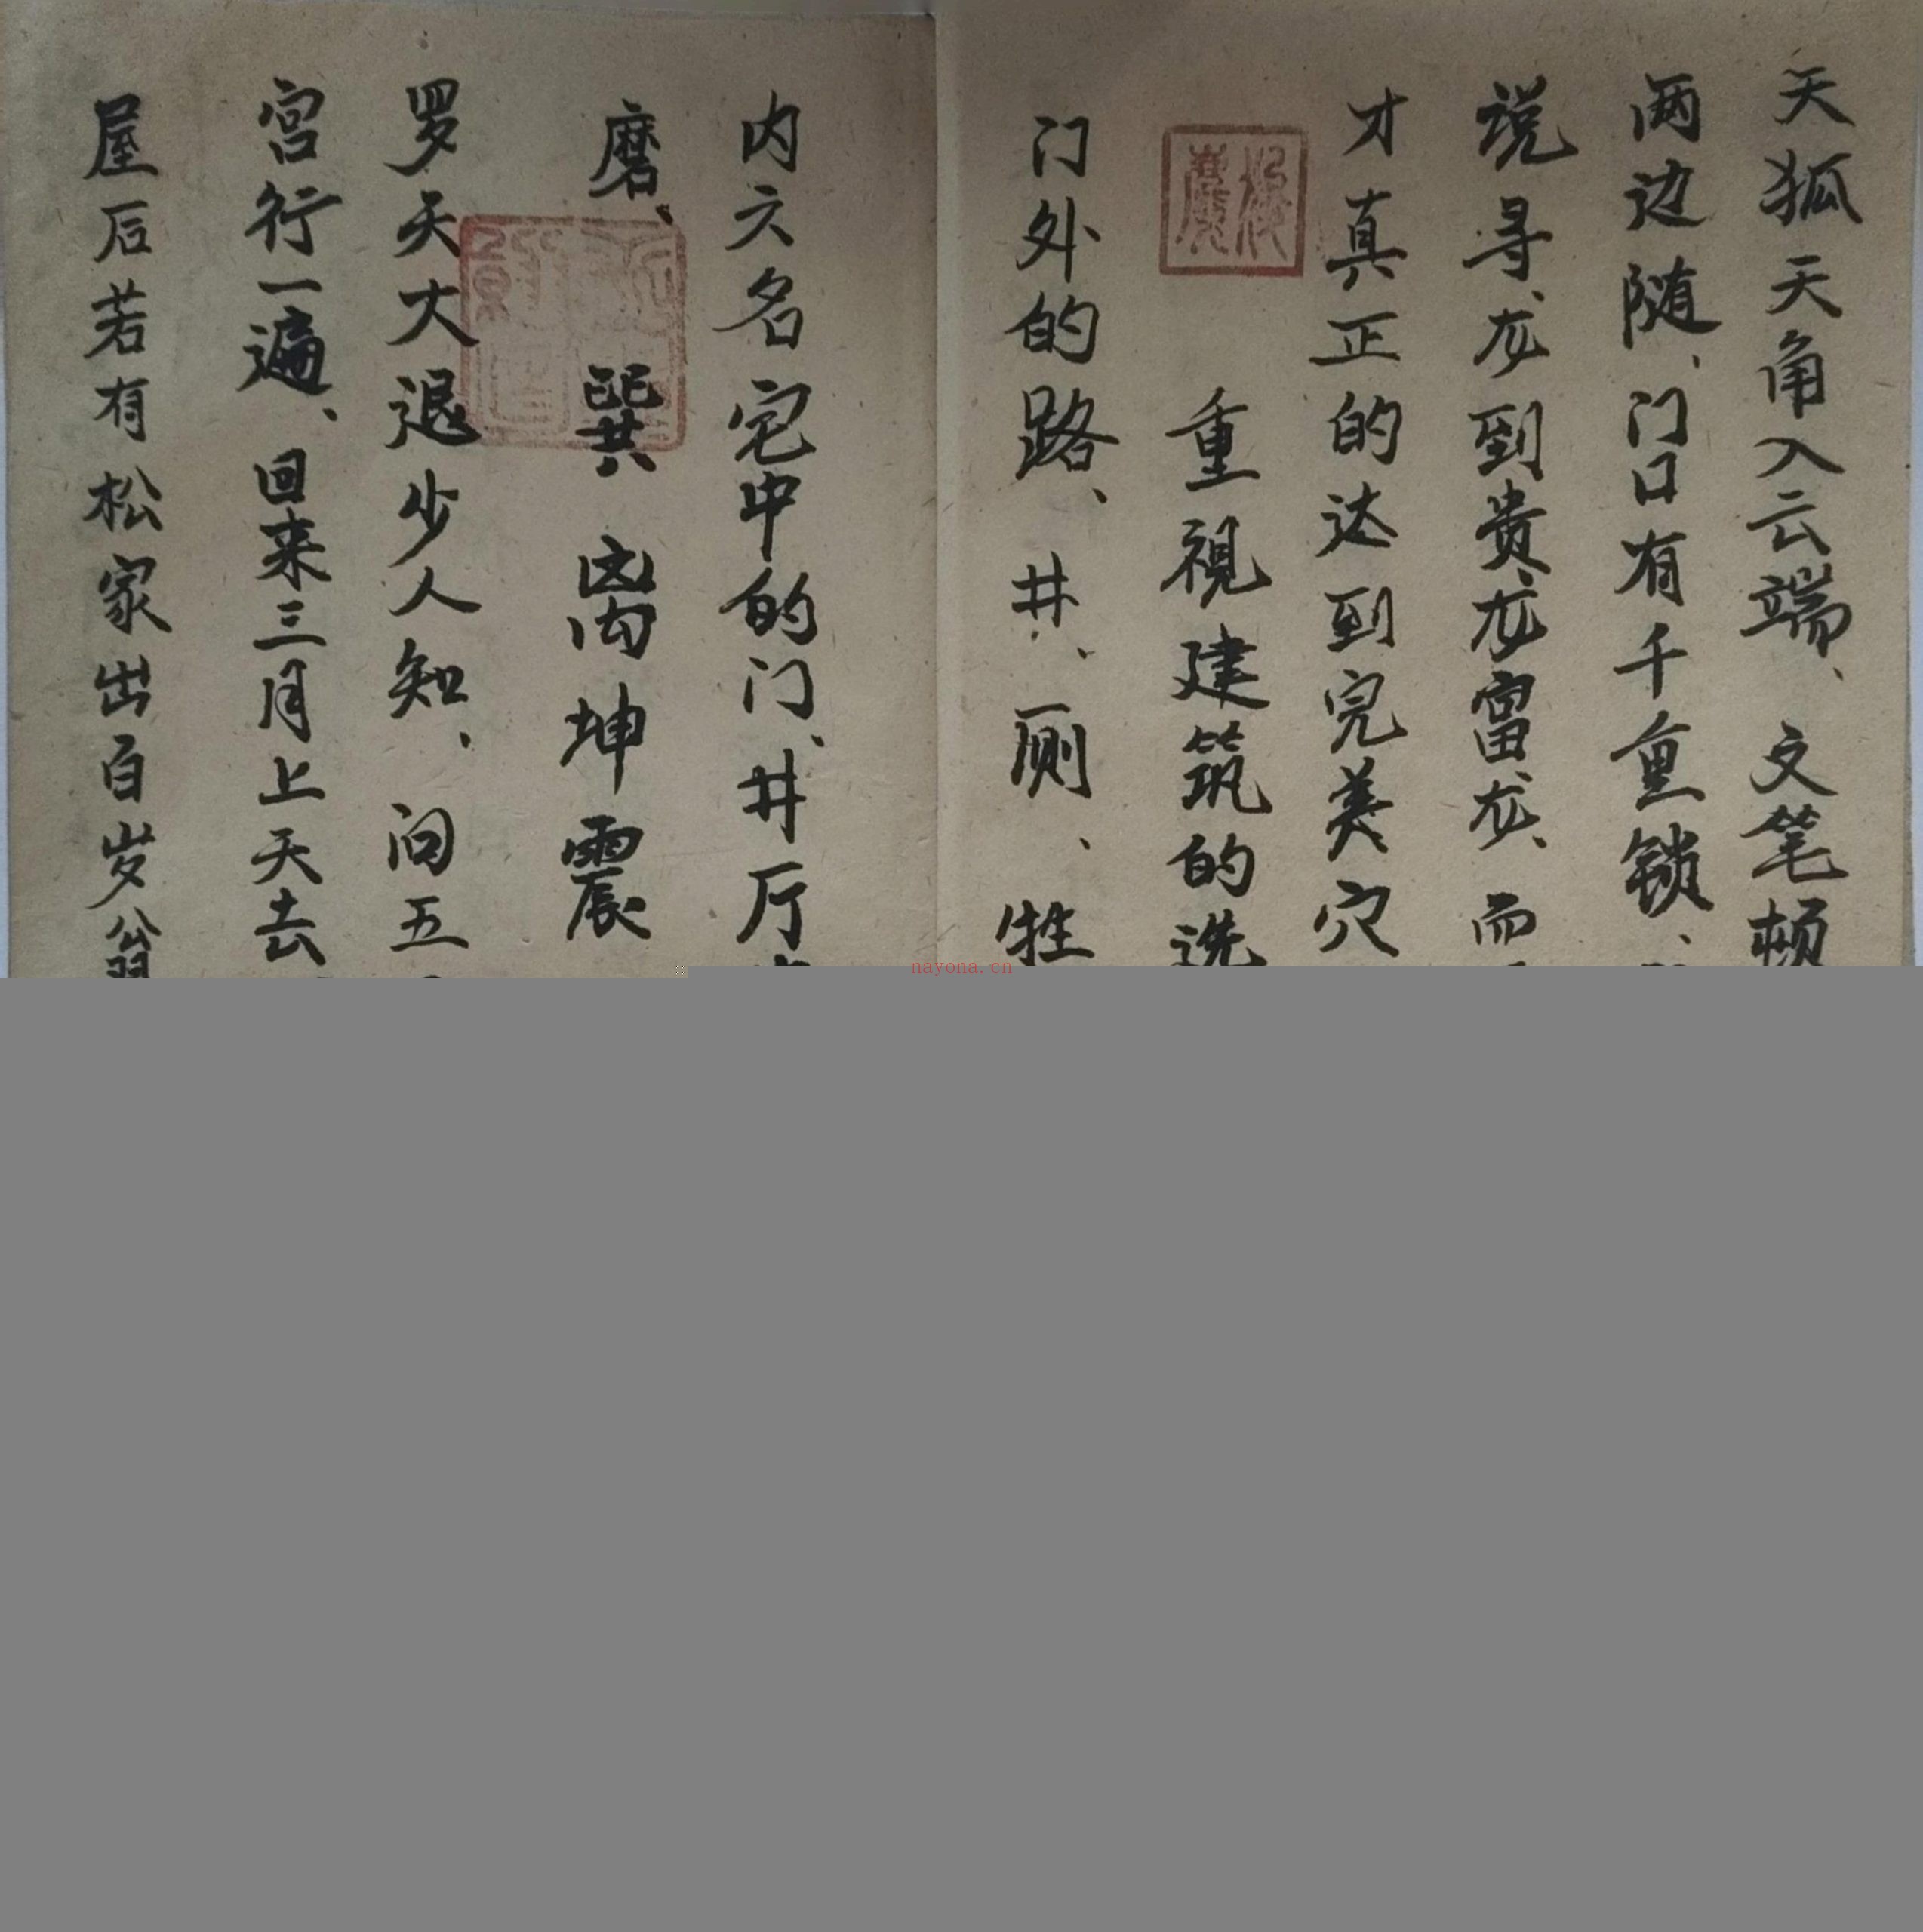 天狐天角入云端、文笔顿
两边随、门口有千重锁、
说寻龙、到贵龙富龙、而
才真正的达到完美穴
重視建筑的选
门外的路、井、厕、牲
内六名宅中的门、井厅
磨、巽离坤震
罗天大退少人知、问五
宫行一遍、回来三月上天去
屋后若有松家出百岁翁
nayona.cn